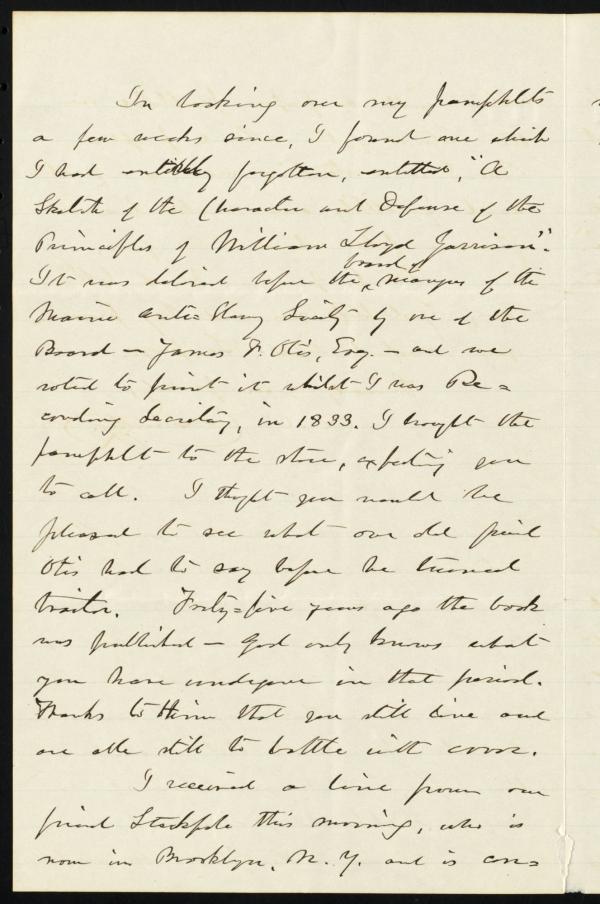 In looking over my pamphlets
a few weeks since, I found one which
I had entirely forgotten, entitled, "A
Sketch of the Character and Defense of the
Principles of William Lloyd Garrison".
It was delivered before the board of Managers of the
Maine Anti=Slavery Society by one of the
Board — James F. Otis, Esq. — and we
voted to print it whilst I was Re=
cording Secretary, in 1833. I brought the
pamphlet to the store, expecting you
to call. I thought you would be
pleased to see what our old friend
Otis had to say before he turned
traitor. Forty=five years ago the book
was published — God only knows what
you have undergone in that period.
Thanks to Him that you still live and
are able still to battle with error.
I received a line from our
friend Stackpole this morning, who is
now in Brooklyn, N. Y. and is con=